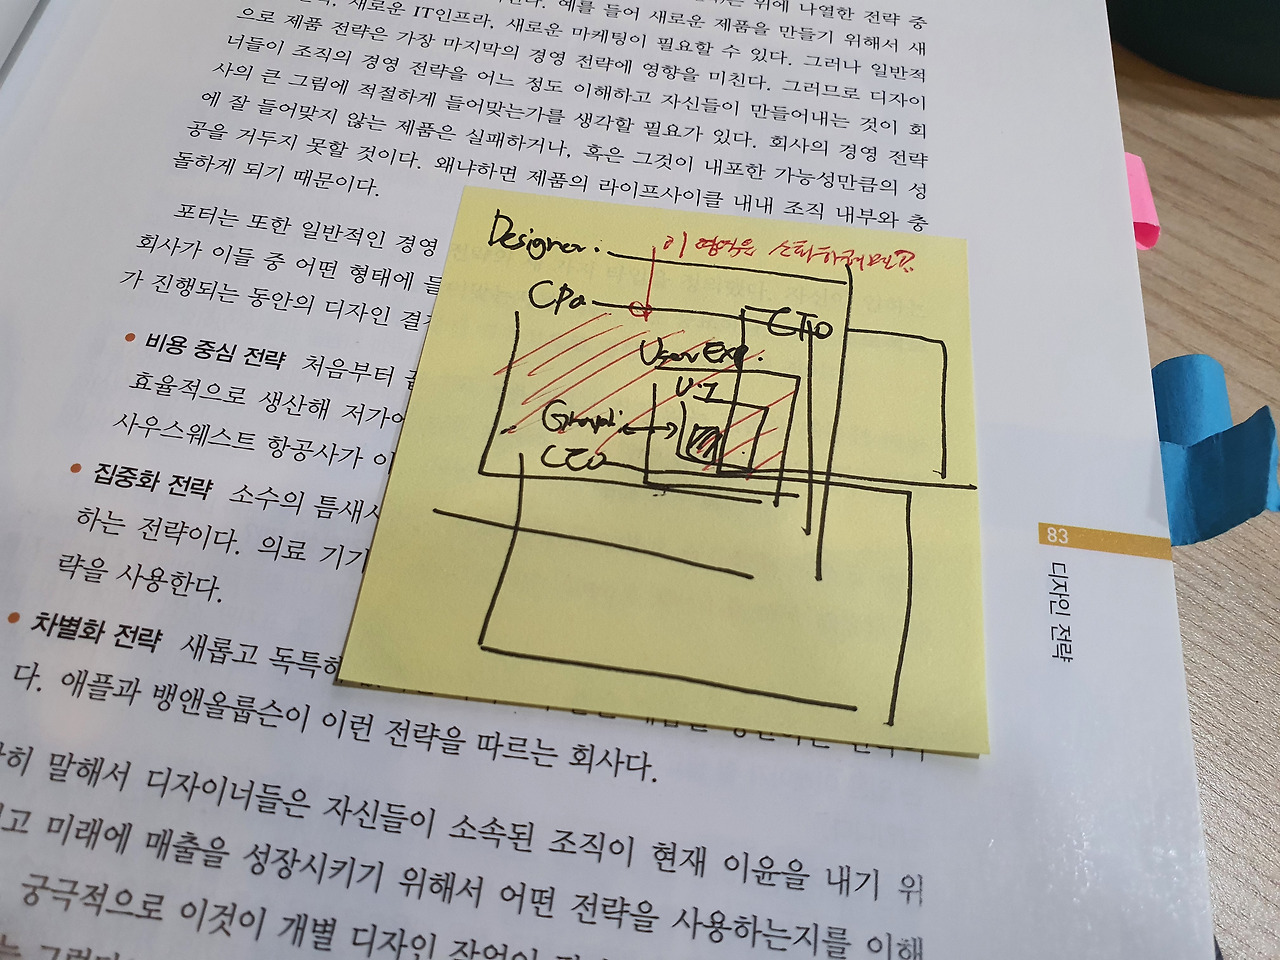 위에 나열한 전략 중
새로운 IT인프라, 새로운 마케팅이 필요할 수 있다. 예를 들어 새로운 제품을 만들기 위해서 새
으로 제품 전략은 가장 마지막의 경영 전략에 영향을 미친다. 그러나 일반적
너들이 조직의 경영 전략을 어느 정도 이해하고 자신들이 만들어내는 것이 회
사의 큰 그림에 적절하게 들어맞는가를 생각할 필요가 있다. 그러므로 디자이
에 잘 들어맞지 않는 제품은 실패하거나, 혹은 그것이 내포한 가능성만큼의 성
공을 거두지 못할 것이다. 왜냐하면 제품의 라이프사이클 내내 조직 내부와 충
돌하게 되기 때문이다. 회사의 경영 전략
포터는 또한 일반적인 경영
회사가 이들 중 어떤 형태에
가 진행되는 동안의 디자인
• 비용 중심 전략 처음부터
효율적으로 생산해 저가에
사우스웨스트 항공사가
• 집중화 전략 소수의 틈새
하는 전략이다. 의료 기기
략을 사용한다.
• 차별화 전략 새롭고 독특
다. 애플과 뱅앤올룹슨이 이런 전략을 따르는 회사다.
말해서 디자이너들은 자신들이 소속된 조직이 현재 이윤을 내기 위
고 미래에 매출을 성장시키기 위해서 어떤 전략을 사용하는지를 이해
궁극적으로 이것이 개별 디자인 작업이
Designer.
이 영역을 소화하려면?
CPO
CTO
User Exp.
U.I
Graphic
CEO
83
디자인 전략